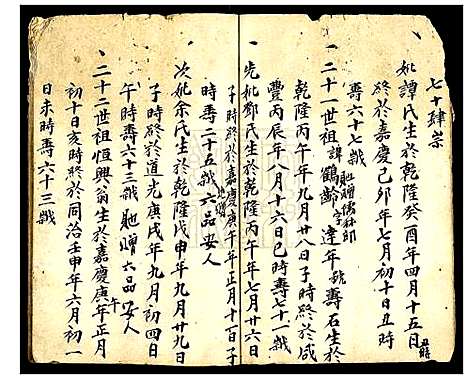 七十肆崇
妣譚氏生於乾隆癸酉年四月十五日丑時
終於嘉慶己卯年七月初十日丑時
壽六十七歲
二十一世祖諱鶴齡字達年號壽石生於
貤贈儒林郎
乾隆丙午年九月廿八日子時終於咸
豐丙辰年八月十六日巳時壽七十一歲
先妣鄧氏生於乾隆丙午年七月廿六日
子時終於嘉慶庚午年正月十一日子
時壽二十五歲貤贈六品安人
次妣余氏生於乾隆戊申年九月廿九日
子時終於道光庚戌年九月初四日
午時壽六十三歲貤贈六品安人
二十二世祖恒興翁生於嘉慶庚午年正月
初十日亥時終於同治壬申年六月初一
日未時壽六十三歲